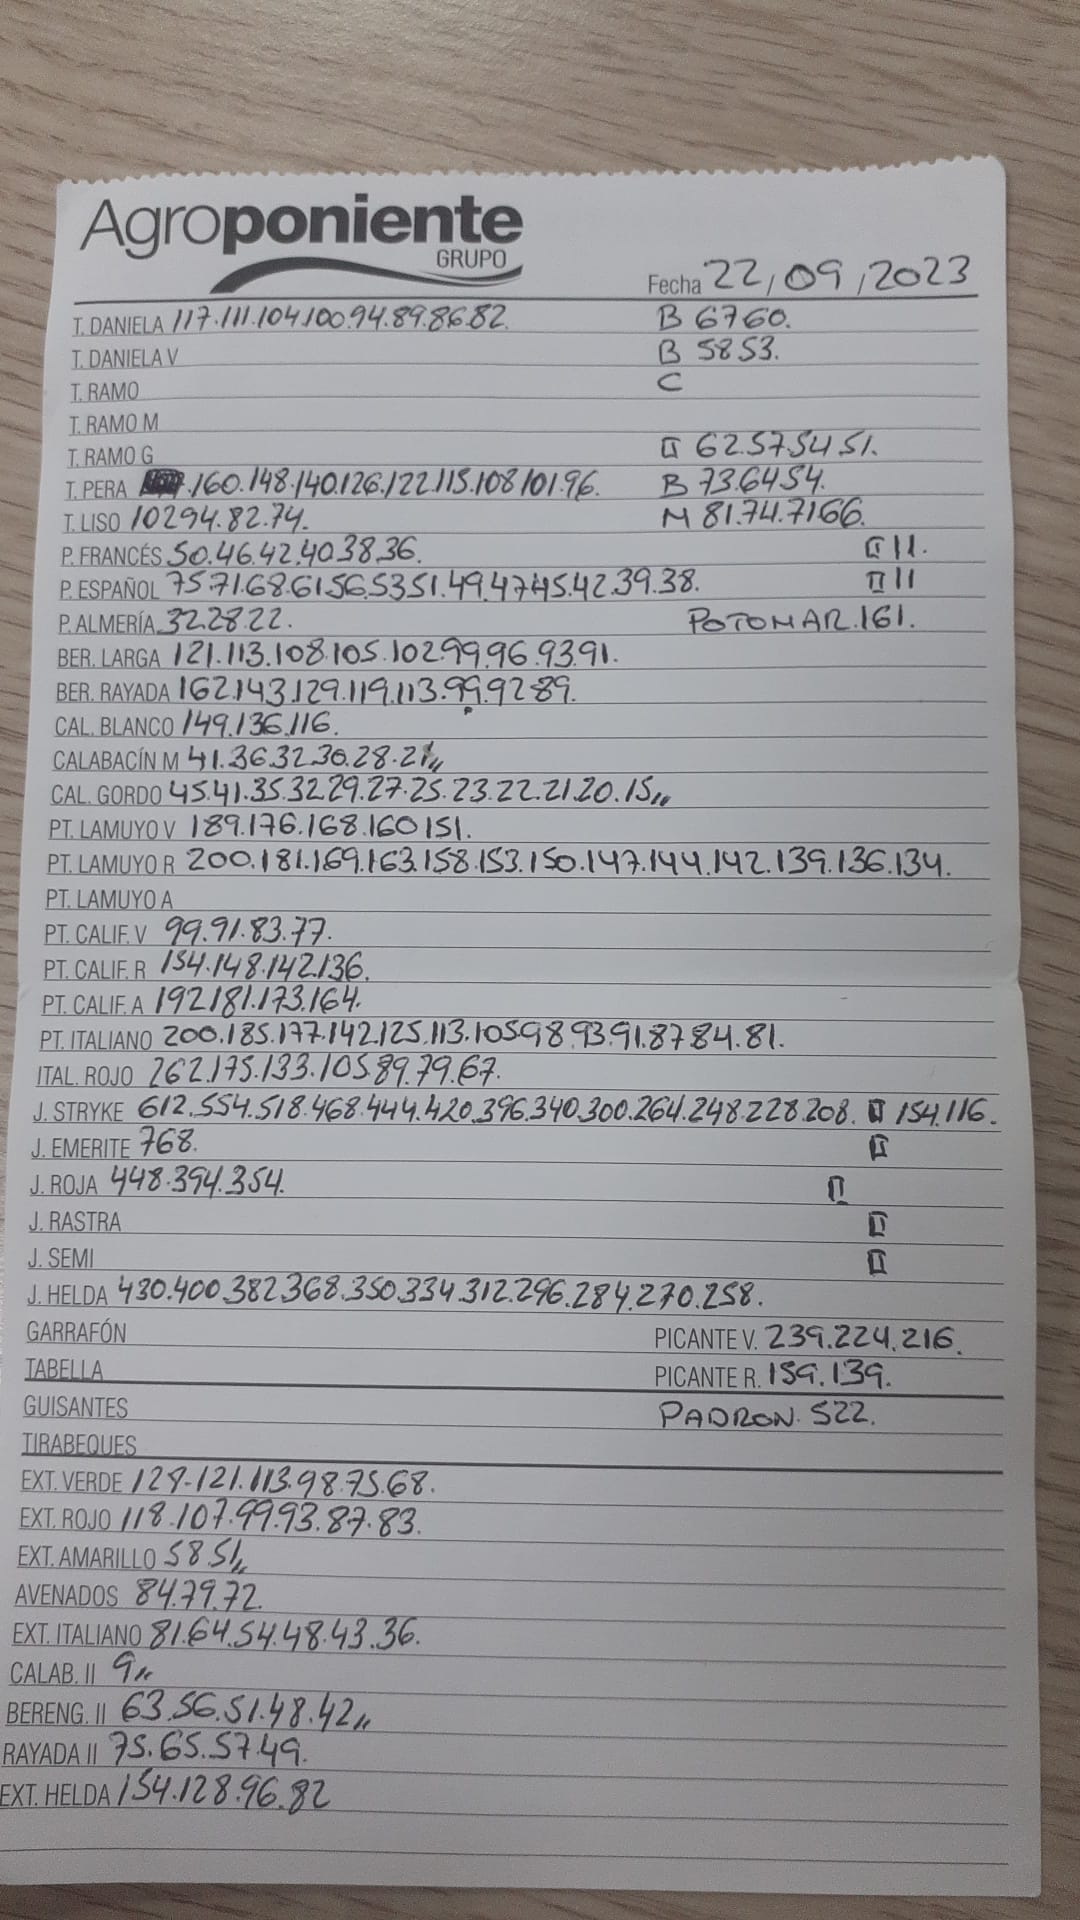 Agroponiente
GRUPO
Fecha 22/09/2023
T. DANIELA 117.111.104.100.94.89.86.82. B 67.60.
T. DANIELA V B 58.53.
T. RAMO C
T. RAMO M
T. RAMO G II 62.57.54.51.
T. PERA .160.148.140.126.122.115.108.101.96. B 73.64.54.
T. LISO 102.94.82.74. M 81.74.71.66.
P. FRANCÉS 50.46.42.40.38.36. II 11.
P. ESPAÑOL 75.71.68.61.56.53.51.49.47.45.42.39.38. II 11
P. ALMERÍA 32.28.22. POTOMAR.161.
BER. LARGA 121.113.108.105.102.99.96.93.91.
BER. RAYADA 162.143.129.119.113.99.92.89.
CAL. BLANCO 149.136.116.
CALABACÍN M 41.36.32.30.28.21,,
CAL. GORDO 45.41.35.32.29.27.25.23.22.21.20.15,,
PT. LAMUYO V 189.176.168.160.151.
PT. LAMUYO R 200.181.169.163.158.153.150.147.144.142.139.136.134.
PT. LAMUYO A
PT. CALIF. V 99.91.83.77.
PT. CALIF. R 154.148.142.136.
PT. CALIF. A 192.181.173.164.
PT. ITALIANO 200.185.177.142.125.113.105.98.93.91.87.84.81.
ITAL. ROJO 262.175.133.105.89.79.67.
J. STRYKE 612.554.518.468.444.420.396.340.300.264.248.228.208. II 154.116.
J. EMERITE 768. II
J. ROJA 448.394.354. II
J. RASTRA II
J. SEMI II
J. HELDA 430.400.382.368.350.334.312.296.284.270.258.
GARRAFÓN PICANTE V. 239.224.216.
TABELLA PICANTE R. 159.139.
GUISANTES PADRON. 522.
TIRABEQUES
EXT. VERDE 129-121.113.98.75.68.
EXT. ROJO 118.107.99.93.87.83.
EXT. AMARILLO 58.51,,
AVENADOS 84.79.72.
EXT. ITALIANO 81.64.54.48.43.36.
CALAB. II 9,,
BERENG. II 63.56.51.48.42,,
RAYADA II 75.65.57.49.
EXT. HELDA 154.128.96.82